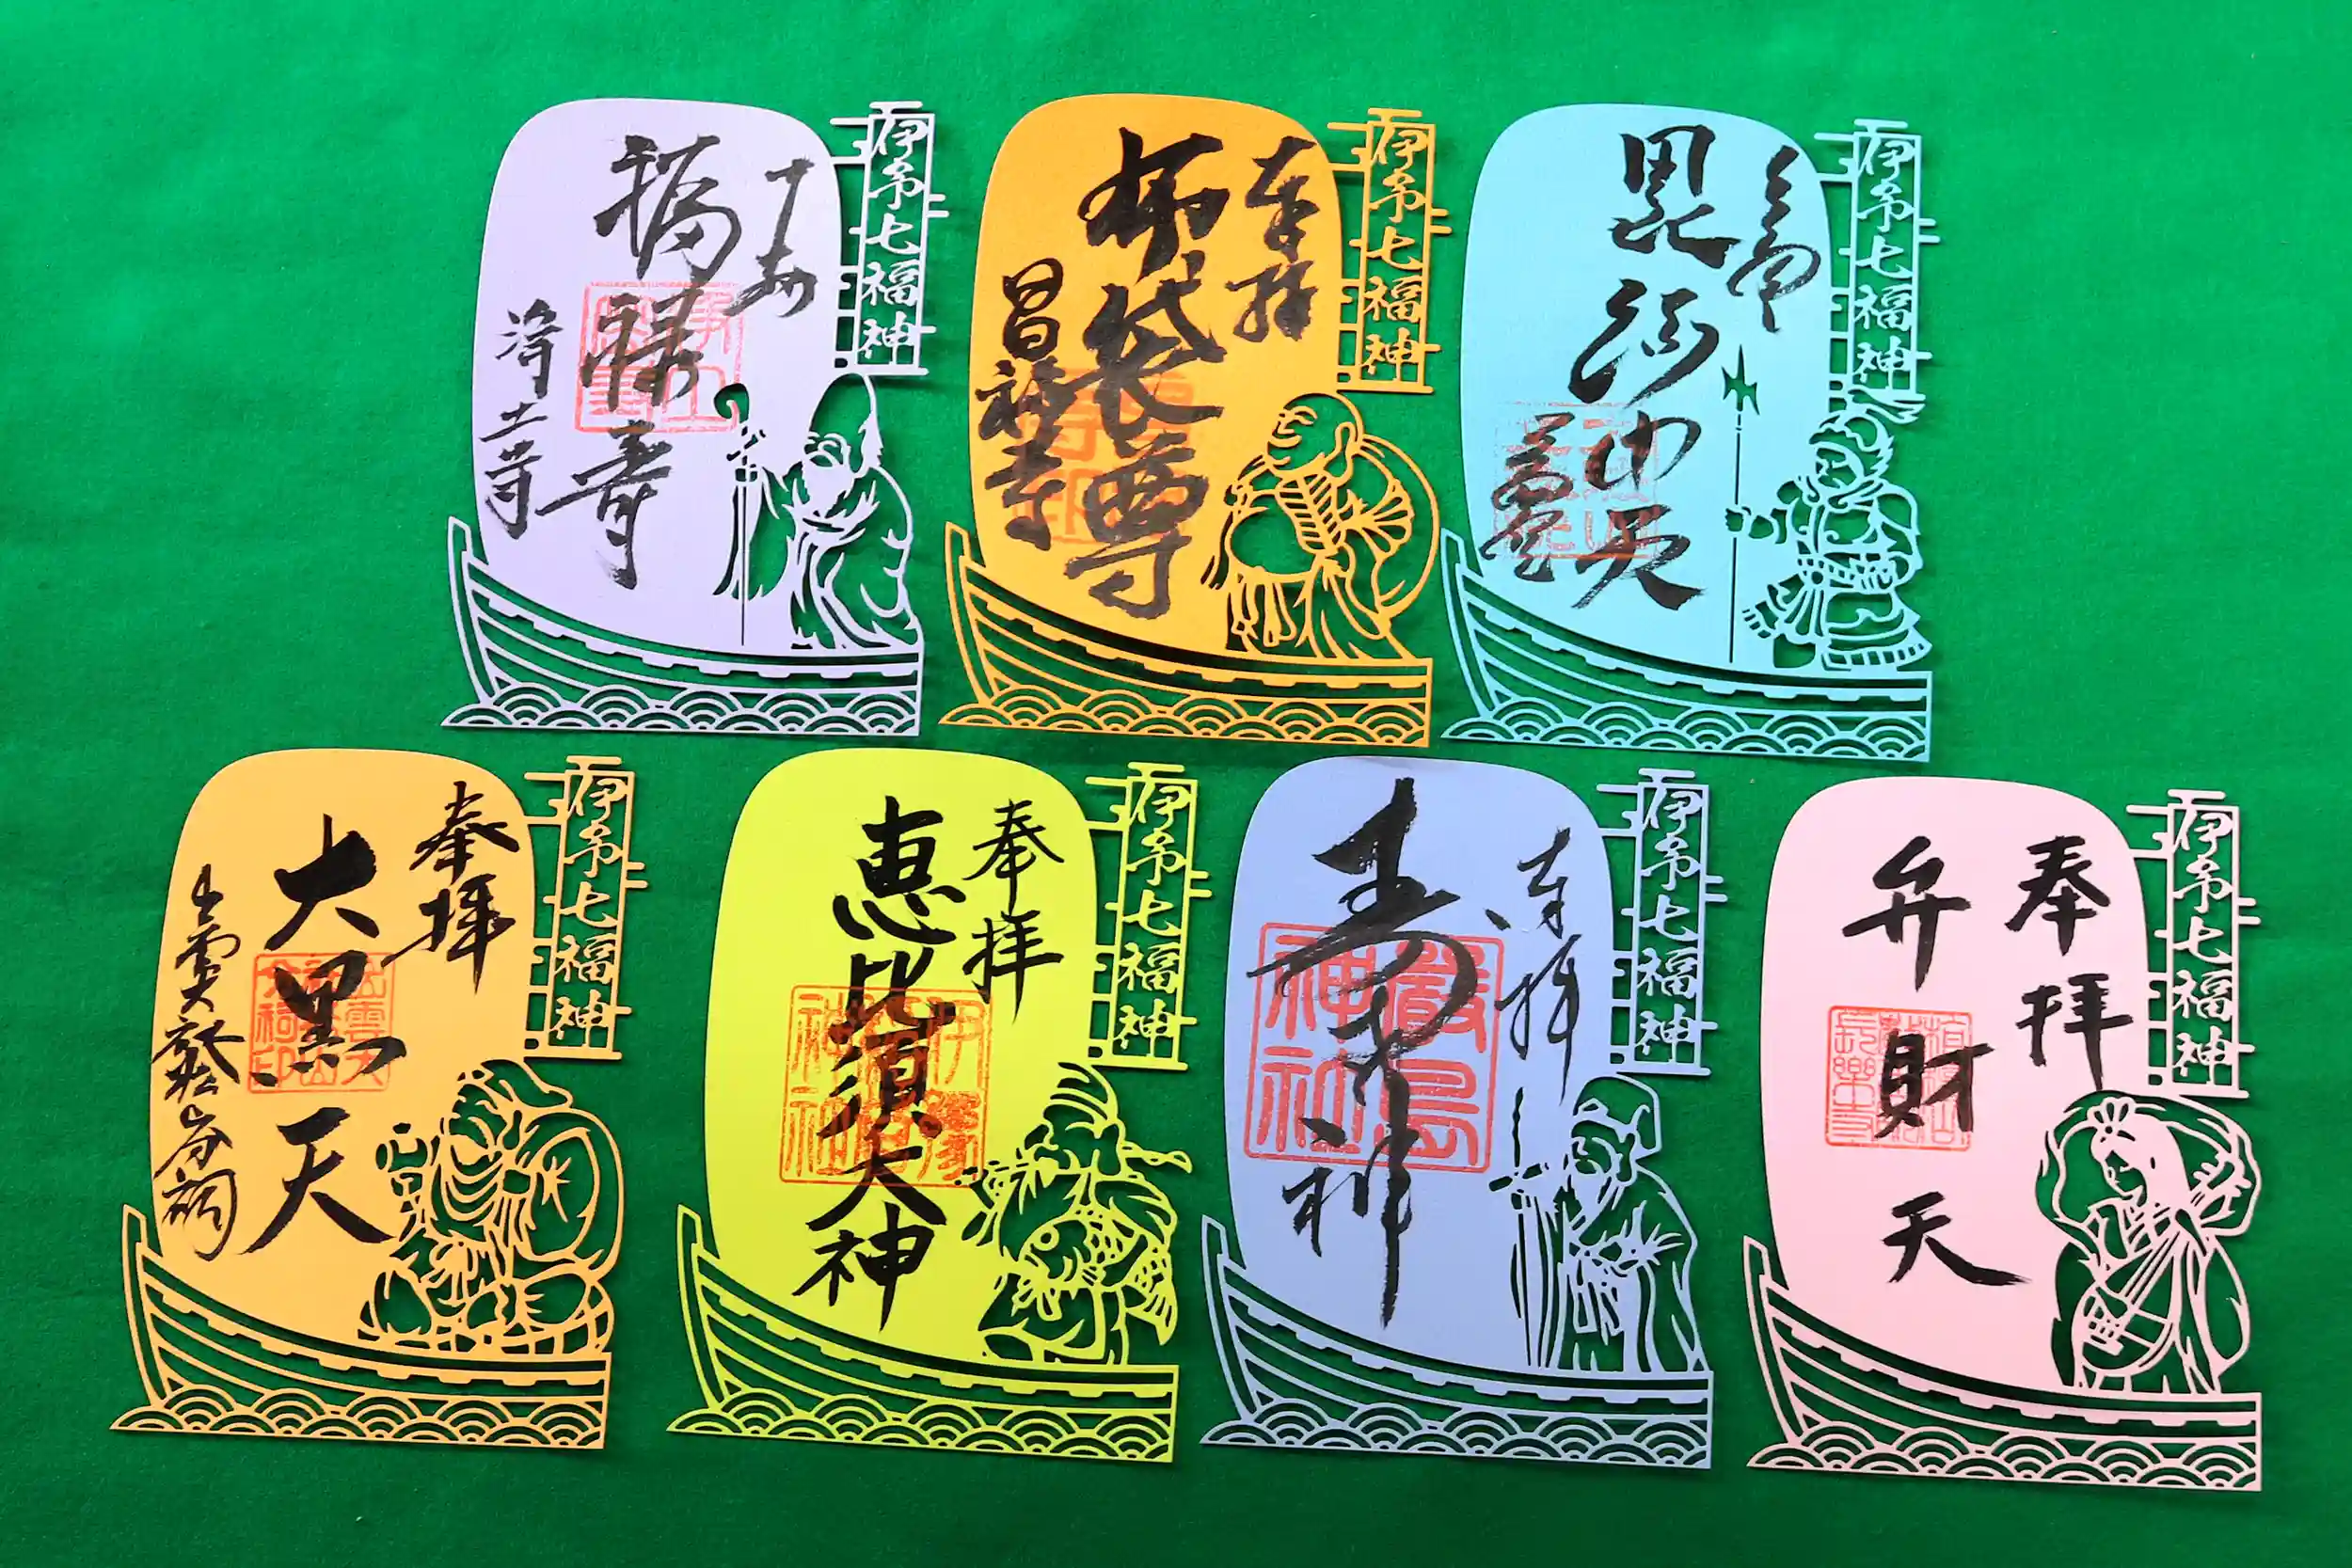 伊予七福神
福禄寿
浄土寺
伊予七福神
奉拝
布袋尊
昌福寺
伊予七福神
毘沙門天
伊予七福神
奉拝
大黒天
出雲大社松山分祠
伊予七福神
奉拝
恵比須大神
伊予七福神
奉拝
寿老神
厳島
神社
伊予七福神
奉拝
弁財天